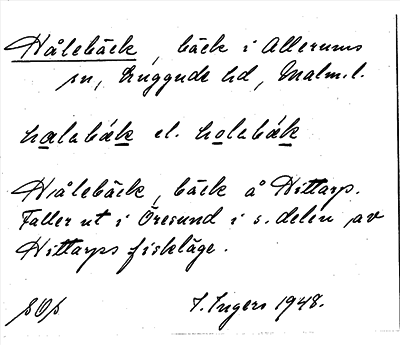 Hålebäck, bäck i Allerums
sn, Luggude hd, Malm.l.
halabäk el. holabäk
Hålebäck, bäck å Hittarp.
Faller ut i Öresund i s. delen av
Hittarps fiskläge.
I. Ingers 1948.